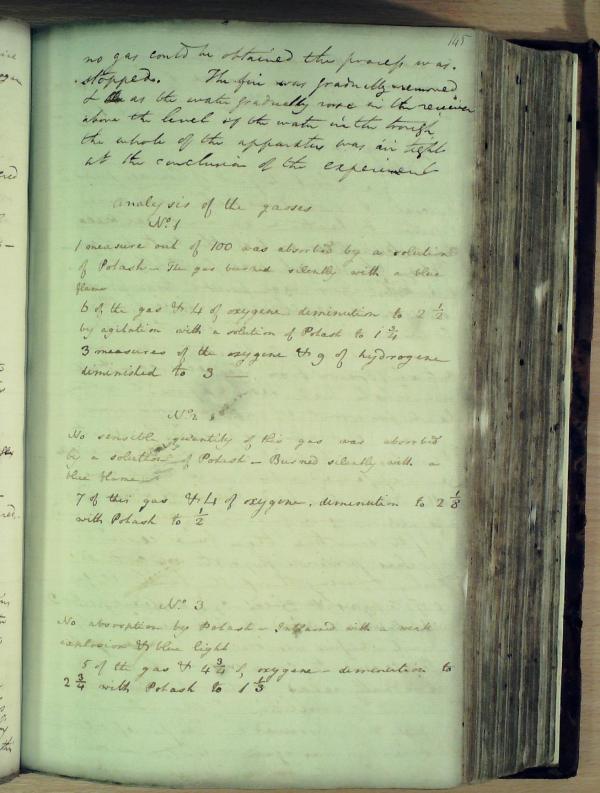 145
no gas could be obtained the process was.
stopped. The fire was gradually removed
& as the water gradually rose in the receiver
above the level of the water in the trough
the whole of the apparatus was air tight
at the conclusion of the experiment
analysis of the gasses
No. 1
1 measure out of 100 was absorbed by a solution
of Potash – The gas burned silently with a blue
flame
6 of the gas & 4 of oxygene diminution to 2 1/2
by agitation with a solution of Potash to 1 3/4
3 measures of the oxygene & 9 of hydrogene
diminished to 3 —
No. 2
No sensible quantity of this gas was absorbed
by a solution of Potash – Burned silently with a
blue flame –
7 of this gas & 4 of oxygene. diminution to 2 1/8
with Potash to 1/2
No. 3
No absorption by Potash – Inflamed with a weak
explosion & blue light
5 of the gas & 4 3/4 of oxygene – diminution to
2 3/4 with Potash to 1 1/3